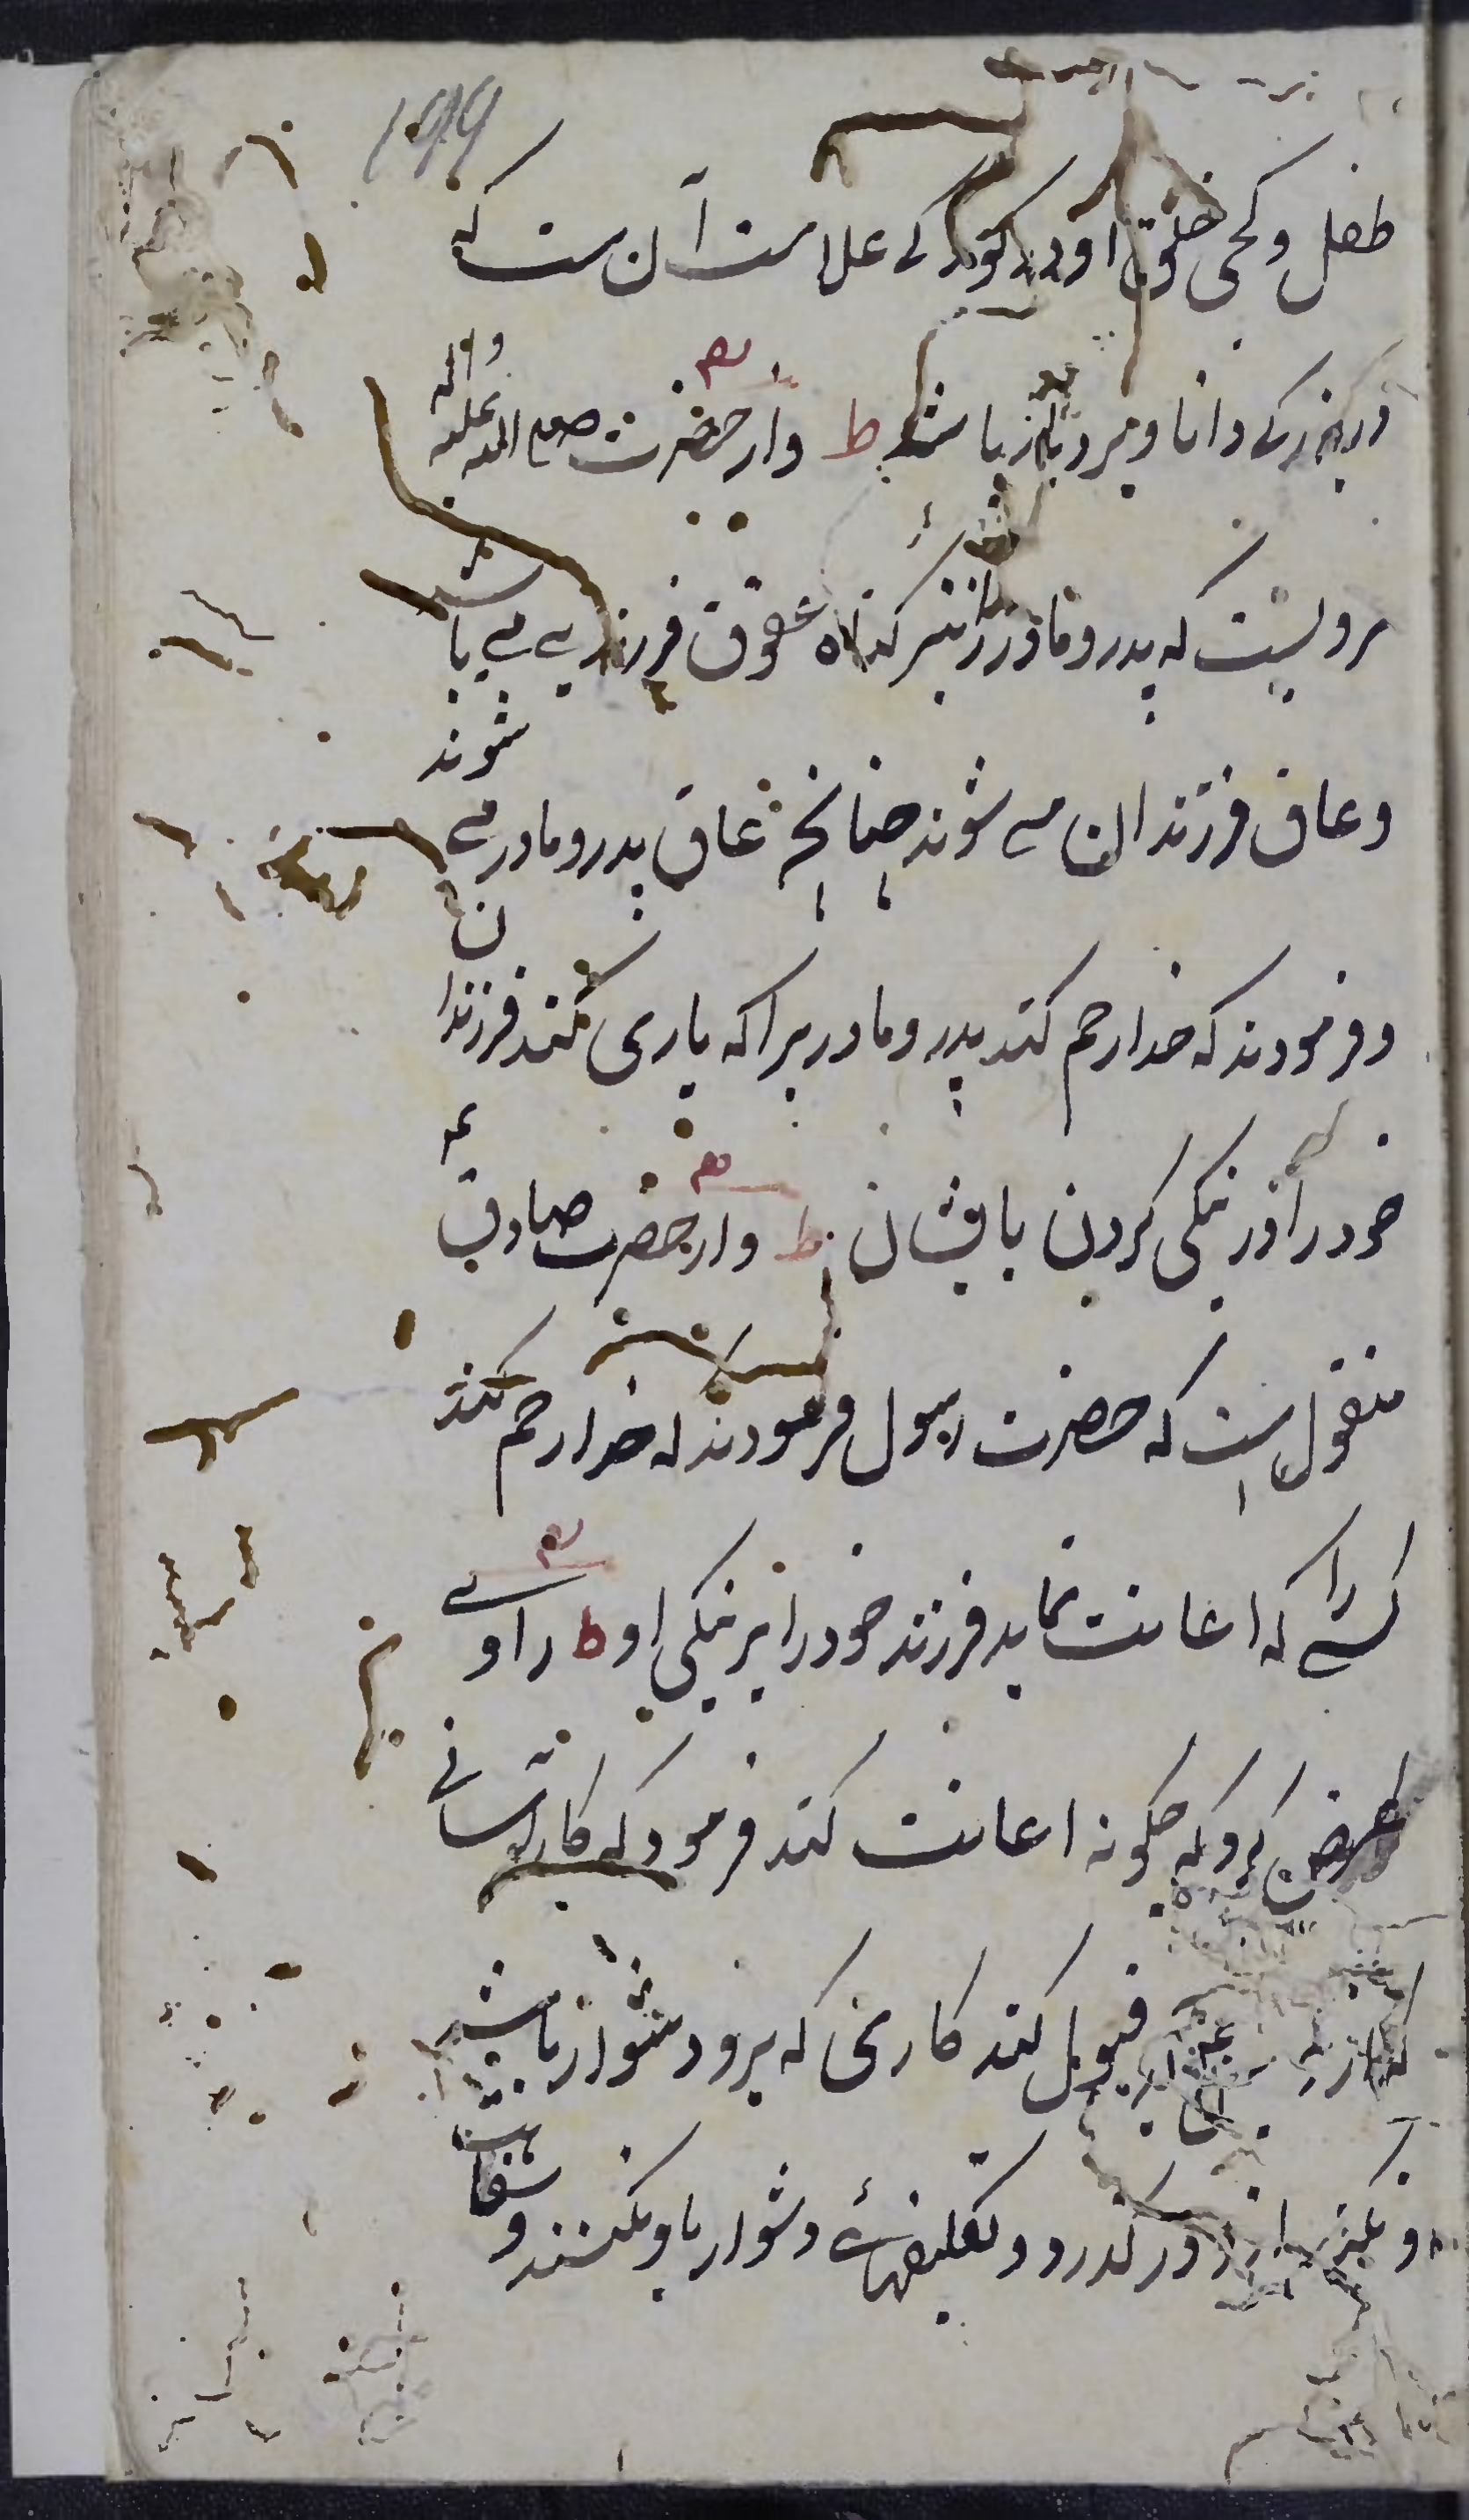 ۱۹۹
طفل و کجی خلوق او در کودکے علامت آن ست که
در بزرگے دانا و بردبار باشد ط و از حضرت صلے اللہ علیہ و آلہ
مرویست که پدر و مادر را نیز گناه عقوق فرزند بے مے باشد
و عاق فرزندان مے شوند چنانچہ عاق پدر و مادر مے شوند
و فرمودند که خدا رحم کند پدر و مادریرا که یاری کنند فرزندان
خود را در نیکی کردن بایشان ط و از حضرت صادق ع
منقول است که حضرت رسول فرمودند که خدا رحم کند
کسے را که اعانت نماید فرزند خود را بر نیکی او ط راوے
عرض کرد که چگونه اعانت کند فرمود که کار آسانے
که از قبول کند کاری که برو دشوار باشد
و در گذرد و تکلیفهائے دشوار باو نکند و سفاهت